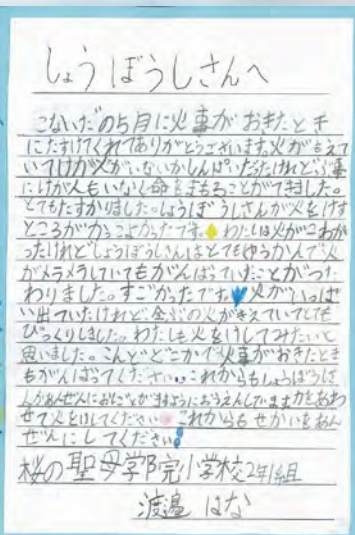 しょうぼうしさんへ
こないだの5月に火事がおきたとき
にたすけてくれてありがとうございます。火がもえて
いてけが人がいないかしんぱいだったけれどぶ事
にけが人もいなく命をまもることができました。
とてもたすかりました。しょうぼうしさんが火をけす
ところがかっこよかったです。わたしは火がこわか
ったけれどしょうぼうしさんはとてもゆうかんで火
がメラメラしていてもがんばっていたことがつた
わりました。すごかったです。火がいっぱ
い出ていたけれど、全ぶの火がきえていてとても
びっくりしました。わたしも火をけしてみたいと
思いました。こんどどこかで火事がおきたとき
もがんばってください。これからもしょうぼうしさ
んがあんぜんにおしごとができるようにおうえんしています力をあわ
せて火をけしてください。これからもせかいをあん
ぜんにしてください
桜の聖母学院小学校2年1組
渡邉 はな